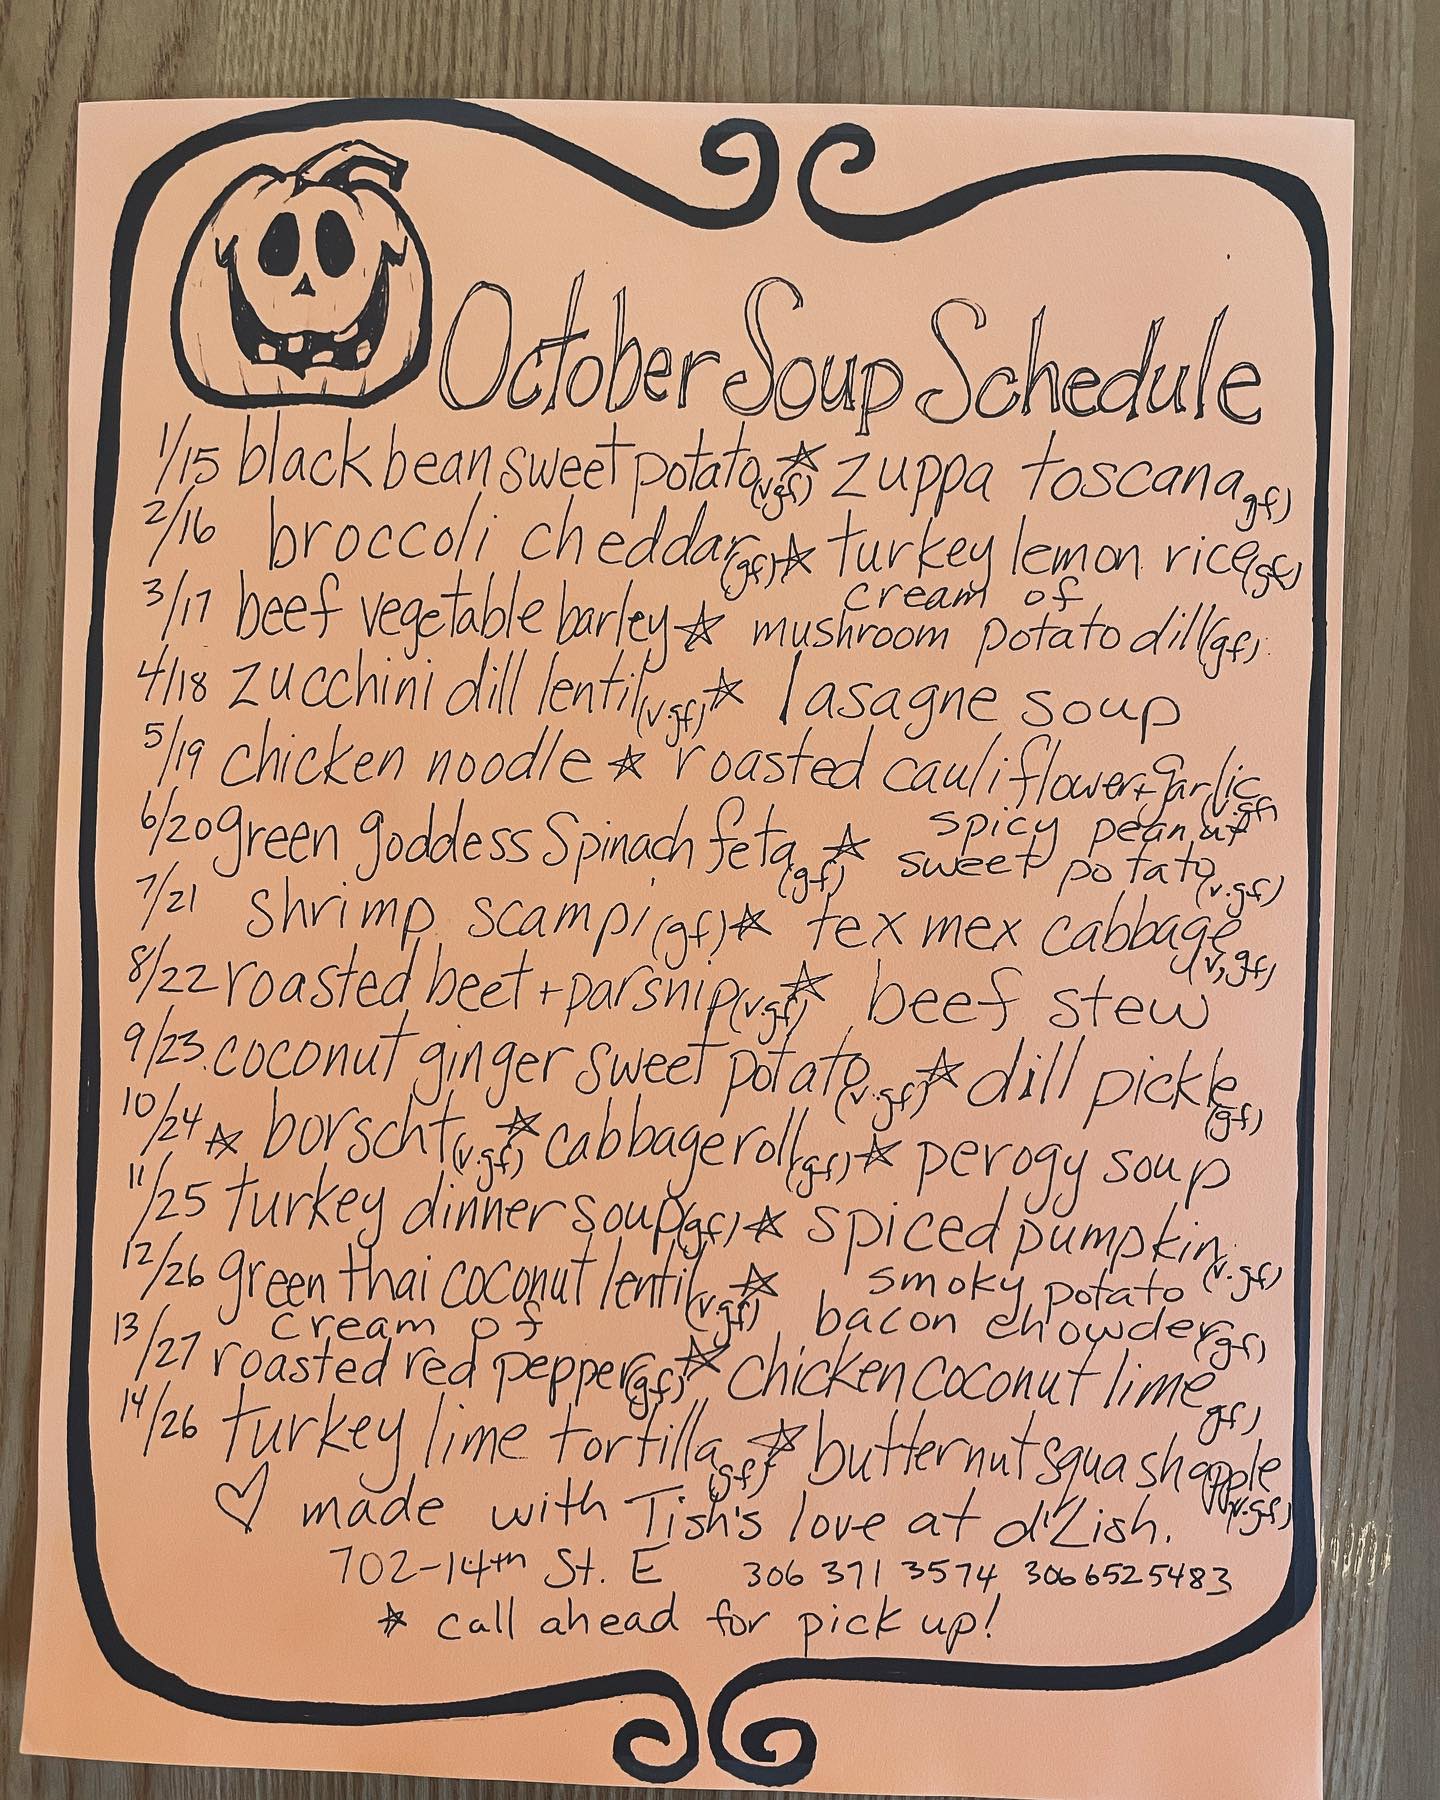 October Soup Schedule
1/15 black bean sweet potato (v.gf) ☆ zuppa toscana gf)
2/16 broccoli cheddar (gf) ☆ turkey lemon rice (gf)
3/17 beef vegetable barley ☆ cream of mushroom potato dill (gf)
4/18 zucchini dill lentil (v.gf) ☆ lasagne soup
5/19 chicken noodle ☆ roasted cauliflower + garlic (v.gf)
6/20 green goddess Spinach feta (gf) ☆ spicy peanut sweet potato (v.gf)
7/21 shrimp scampi (gf) ☆ tex mex cabbage (v,gf)
8/22 roasted beet + parsnip (v.gf) ☆ beef stew
9/23 coconut ginger sweet potato (v.gf) ☆ dill pickle (gf)
10/24 ☆ borscht (v.gf) ☆ cabbage roll (gf) ☆ perogy soup
11/25 turkey dinner soup (gf) ☆ spiced pumpkin (v.gf)
12/26 green thai coconut lentil (v.gf) ☆ smoky potato bacon chowder (gf)
13/27 cream of roasted red pepper (gf) ☆ chicken coconut lime gf)
14/26 turkey lime tortilla (gf) ☆ butternut squash apple (v.gf)
♡ made with Tish's love at d'Lish.
702-14th St. E 306 371 3574 306 652 5483
☆ call ahead for pick up!